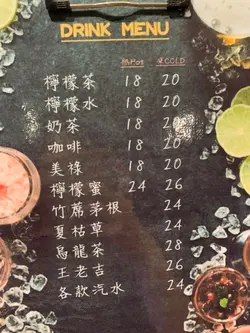 DRINK MENU
熱Hot 凍COLD
檸檬茶 18 20
檸檬水 18 20
奶茶 18 20
咖啡 18 20
美祿 18 20
檸檬蜜 24 26
竹蔗茅根 24
夏枯草 24
烏龍茶 28
王老吉 26
各款汽水 24